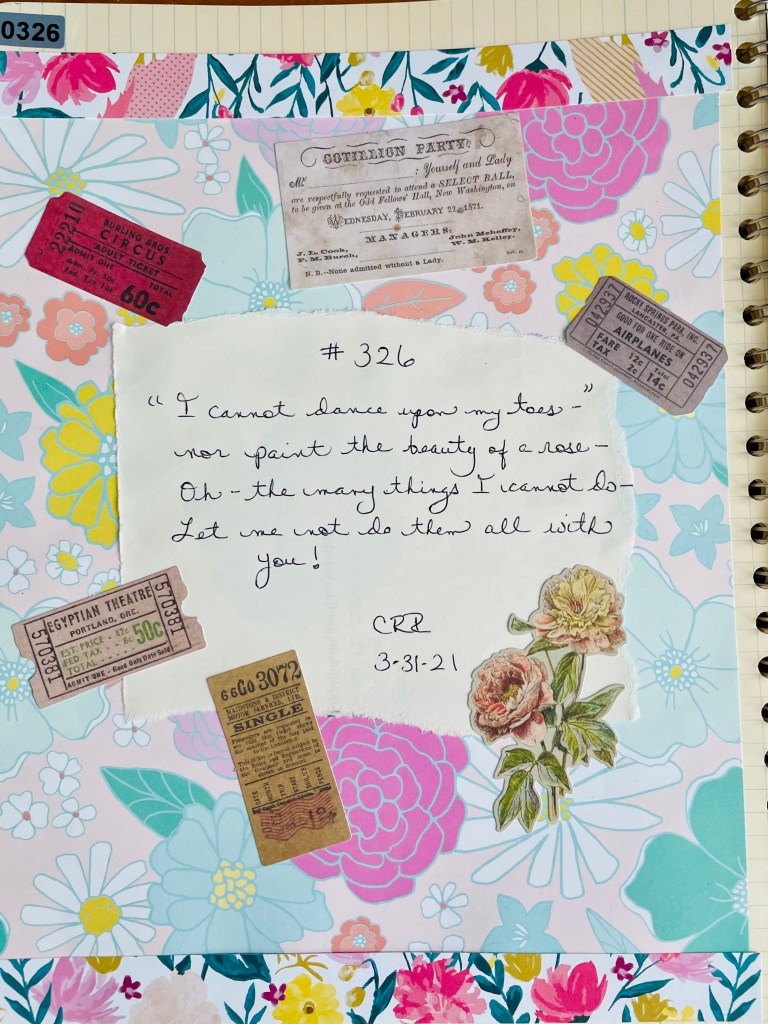 0326
COTILLION PARTY.
M : Yourself and Lady
are respectfully requested to attend a SELECT BALL,
to be given at the Odd Fellows' Hall, New Washington, on
WEDNESDAY, FEBRUARY 22, 1871.
MANAGERS:
J. L. Cook, John Mehaffey,
F. M. Burch, W. M. Kelley.
N. B.--None admitted without a Lady.
22210
BURLING BROS
CIRCUS
ADULT TICKET
ADMIT ONE
TOTAL
60c
042937
ROCKY SPRINGS PARK, INC.
LANCASTER, PA.
GOOD FOR ONE RIDE ON
AIRPLANES
FARE 12c Total
TAX 2c 14c
042937
# 326
"I cannot dance upon my toes-"
nor paint the beauty of a rose-
Oh - the many things I cannot do-
Let me not do them all with
you!
CRR
3-31-21
570381
EGYPTIAN THEATRE
PORTLAND, ORE.
EST. PRICE - 42c
FED TAX - 8c
TOTAL 50c
ADMIT ONE - Good Only Date Sold
570381
66Go 3072
MAIDSTONE & DISTRICT
MOTOR SERVICES, LTD.
SINGLE